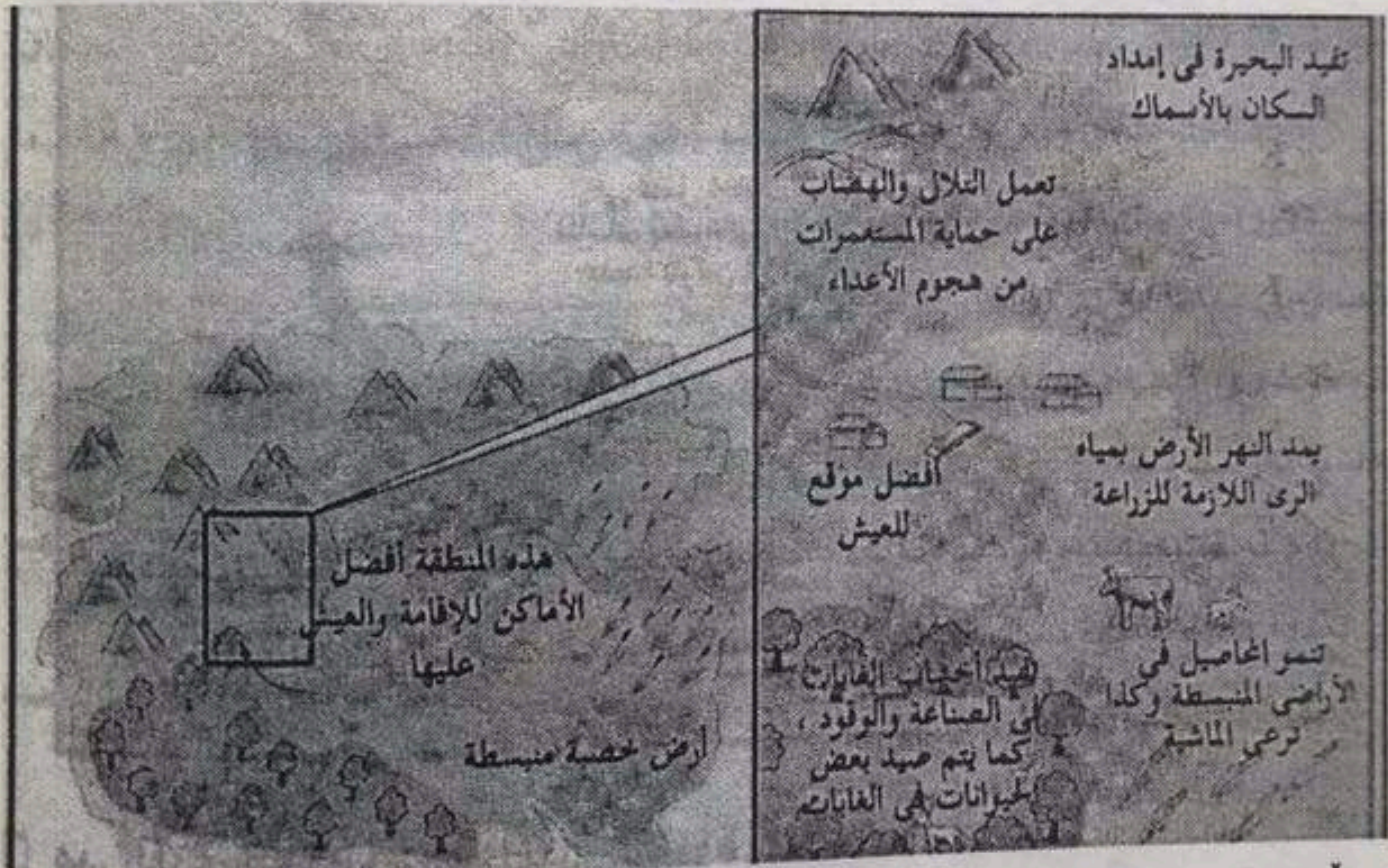 تفيد البحيرة فى إمداد
السكان بالأسماك
تعمل التلال والهضاب
على حماية المستعمرات
من هجوم الأعداء
يمد النهر الأرض بمياه
الرى اللازمة للزراعة
أفضل موقع
للعيش
تنمو المحاصيل فى
الأراضى المنبسطة وكذا
ترعى الماشية
تفيد أخشاب الغابات
فى الصناعة والوقود ،
كما يتم صيد بعض
الحيوانات فى الغابات
هذه المنطقة أفضل
الأماكن للإقامة والعيش
عليها
أرض خصبة منبسطة